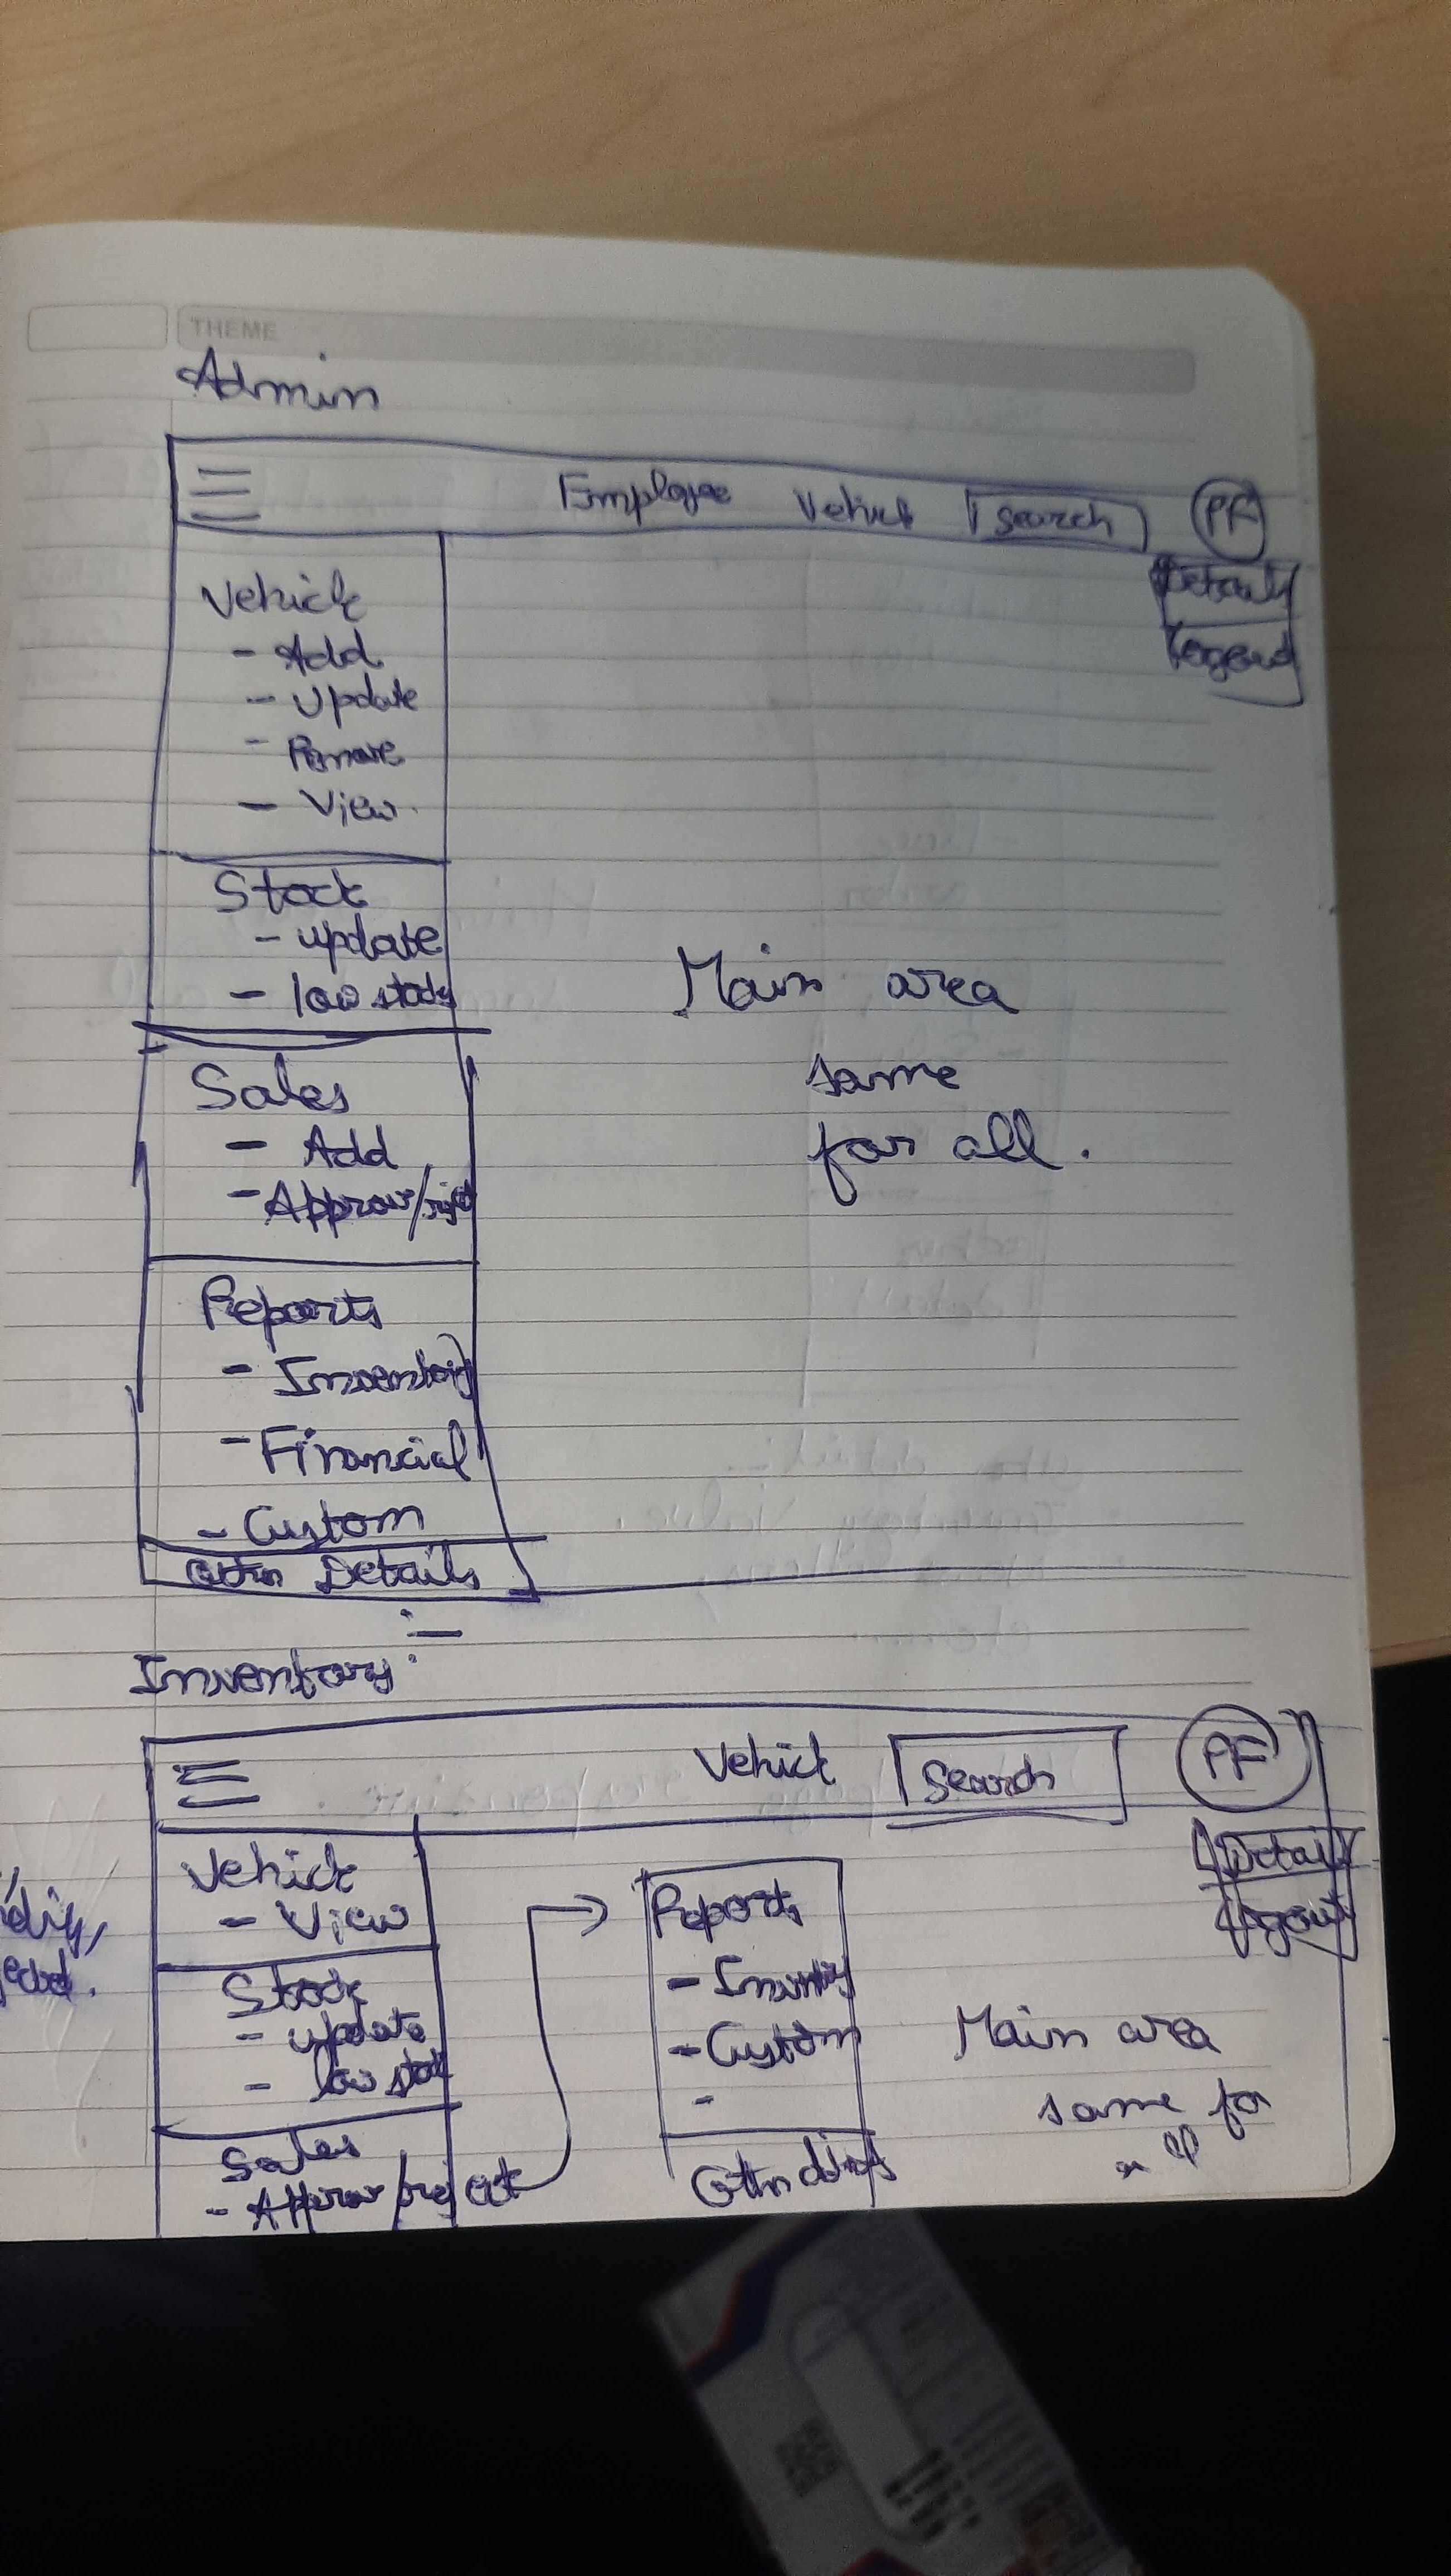 THEME
Admin
Employee Vehicle Search PF
Details
Logout
Vehicle
- Add
- Update
- Remove
- View
Stock
- update
- low stock
Main area
same
for all.
Sales
- Add
- Approve/reject
Reports
- Inventory
- Financial
- Custom
Othr Details
Inventory:
Vehicle Search PF
Details
Logout
Vehicle
- View
Stock
- update
- low stock
Sales
- Approve/reject
Reports
- Inventory
- Custom
-
Othr details
Main area
same for
all